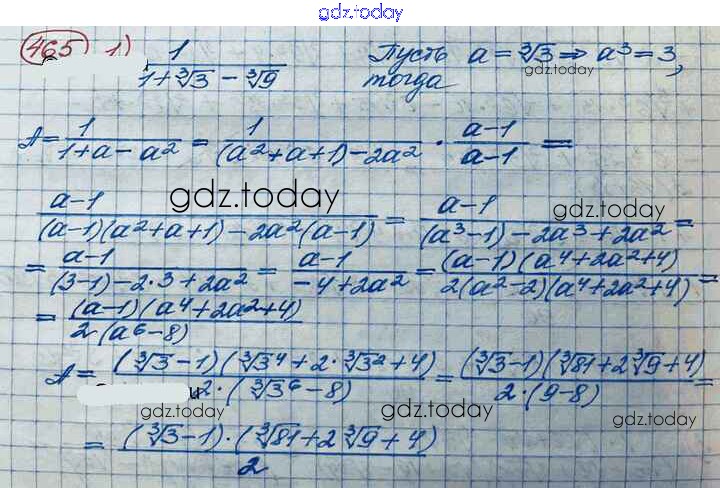 gdz.today
465 1) 1/(1+∛3 − ∛9) Пусть a = ∛3 ⇒ a³ = 3,
gdz.today
тогда
A = 1/(1+a−a²) = 1/((a²+a+1)−2a²) · (a−1)/(a−1) =
gdz.today
gdz.today
(a−1)/((a−1)(a²+a+1)−2a²(a−1)) = (a−1)/((a³−1)−2a³+2a²) =
= (a−1)/((3−1)−2·3+2a²) = (a−1)/(−4+2a²) = (a−1)(a⁴+2a²+4)/(2(a²−2)(a⁴+2a²+4)) =
= (a−1)(a⁴+2a²+4)/(2(a⁶−8))
A = (∛3−1)(∛3⁴+2·∛3²+4)/(2·(∛3⁶−8)) = (∛3−1)(∛81+2∛9+4)/(2·(9−8)) =
gdz.today
gdz.today
gdz.today
= (∛3−1)·(∛81+2∛9+4)/2